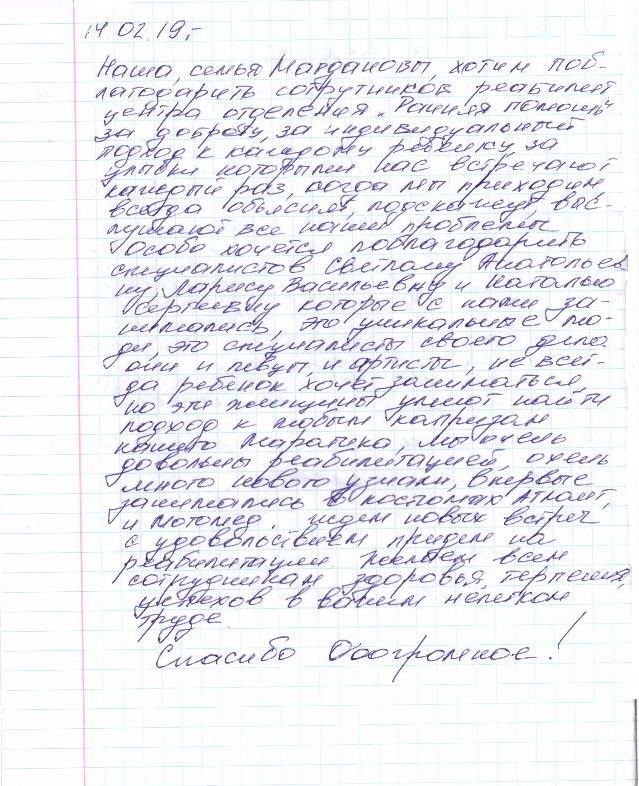 14 02.19,-
Наша, семья Мардановы, хотим поб-
лагодарить сотрутников реабилит
центра отделения „Ранняя помощь"
за доброту, за индивидуальный
подход к каждому ребенку, за
улыбки которыми нас встречают
каждый раз, когда мы приходим
всегда объяснят, подскажут, выс-
лушают все наши проблемы
Особо хочется поблагодарить
специалистов Светлану Анатольев
ну, Ларису Васильевну и Наталью
Сергеевну которые с нами за-
нимались, это уникальные лю-
ди, это специалисты своего дела
они и певцы, и артисты, не всег-
да ребенок хочет заниматься
но эти женщины умеют найти
подход к любым капризам
нашего Маратика, мы очень
довольны реабилитацией, очень
много нового узнали, впервые
занимались в костюмах Атлант,
и Мотомед. ждем новых встреч
с удовольствием придем на
реабилитации. Желаем всем
сотрудникам здоровья, терпения,
успехов в вашем нелегком
труде
Спасибо Ооогромное!